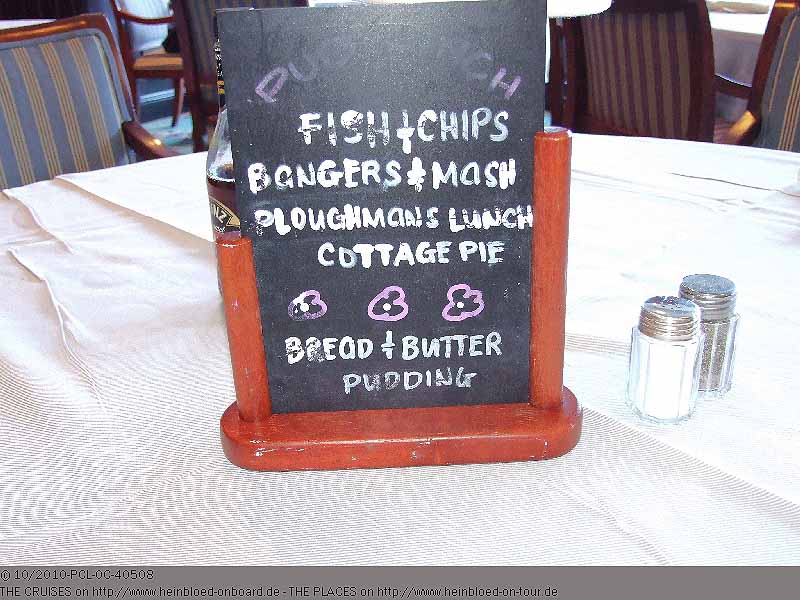 PUB LUNCH
FISH & CHIPS
BANGERS & MASH
PLOUGHMANS LUNCH
COTTAGE PIE
BREAD & BUTTER
PUDDING
© 10/2010-PCL-OC-40508
THE CRUISES on http://www.heinbloed-onboard.de - THE PLACES on http://www.heinbloed-on-tour.de